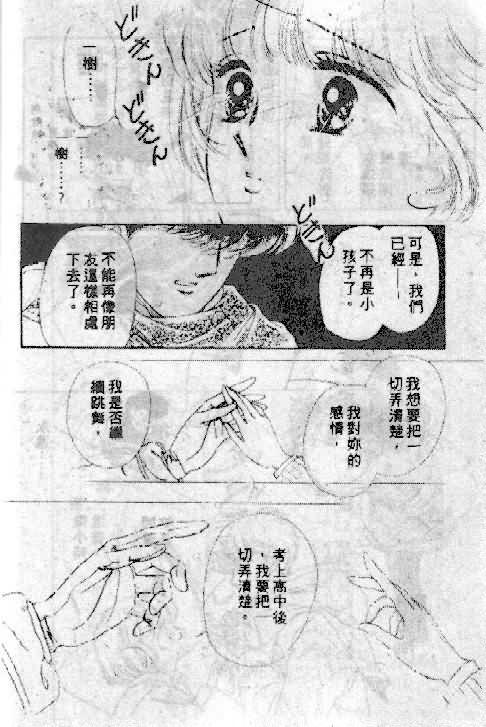 どきん
どきん
一樹……
……
樹……?
どきん
可是，我們
已經——
不再是小
孩子了。
不能再像朋
友這樣相處
下去了。
我想要把一
切弄清楚，
我對妳的
感情，
我是否繼
續跳舞，
考上高中後
，我要把一
切弄清楚。